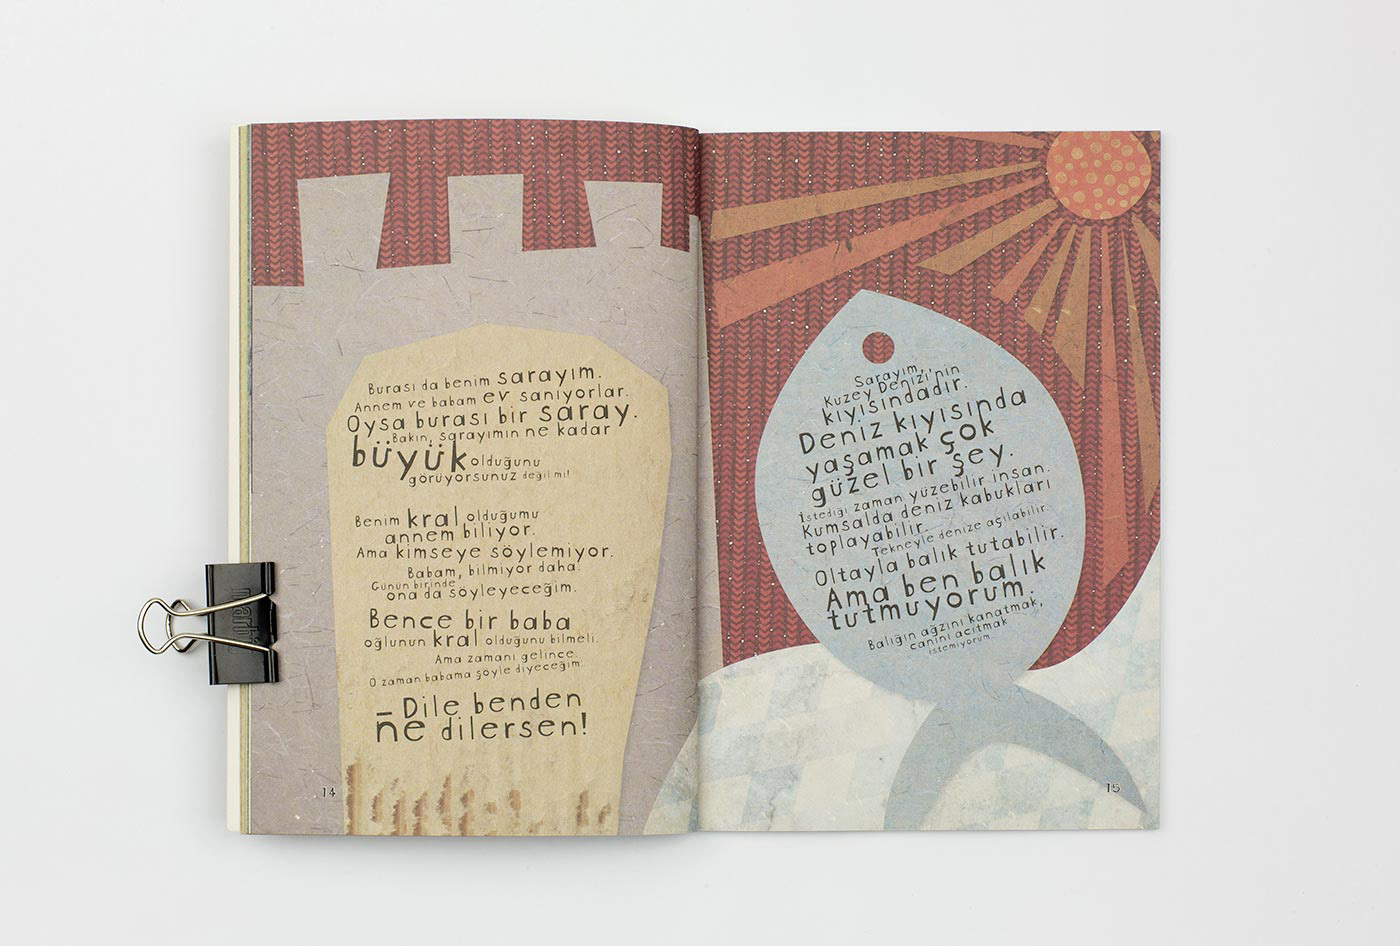 Burası da benim sarayım.
Annem ve babam ev sanıyorlar.
Oysa burası bir saray.
Bakın, sarayımın ne kadar
büyük olduğunu
görüyorsunuz değil mi!
Benim kral olduğumu
annem biliyor.
Ama kimseye söylemiyor.
Babam, bilmiyor daha.
Günün birinde
ona da söyleyeceğim.
Bence bir baba
oğlunun kral olduğunu bilmeli.
Ama zamanı gelince.
O zaman babama şöyle diyeceğim:
–Dile benden
ne dilersen!
14
Sarayım,
Kuzey Denizi'nin
kıyısındadır.
Deniz kıyısında
yaşamak çok
güzel bir şey.
İstediği zaman yüzebilir insan.
Kumsalda deniz kabukları
toplayabilir.
Tekneyle denize açılabilir.
Oltayla balık tutabilir.
Ama ben balık
tutmuyorum.
Balığın ağzını kanatmak,
canını acıtmak
istemiyorum.
15